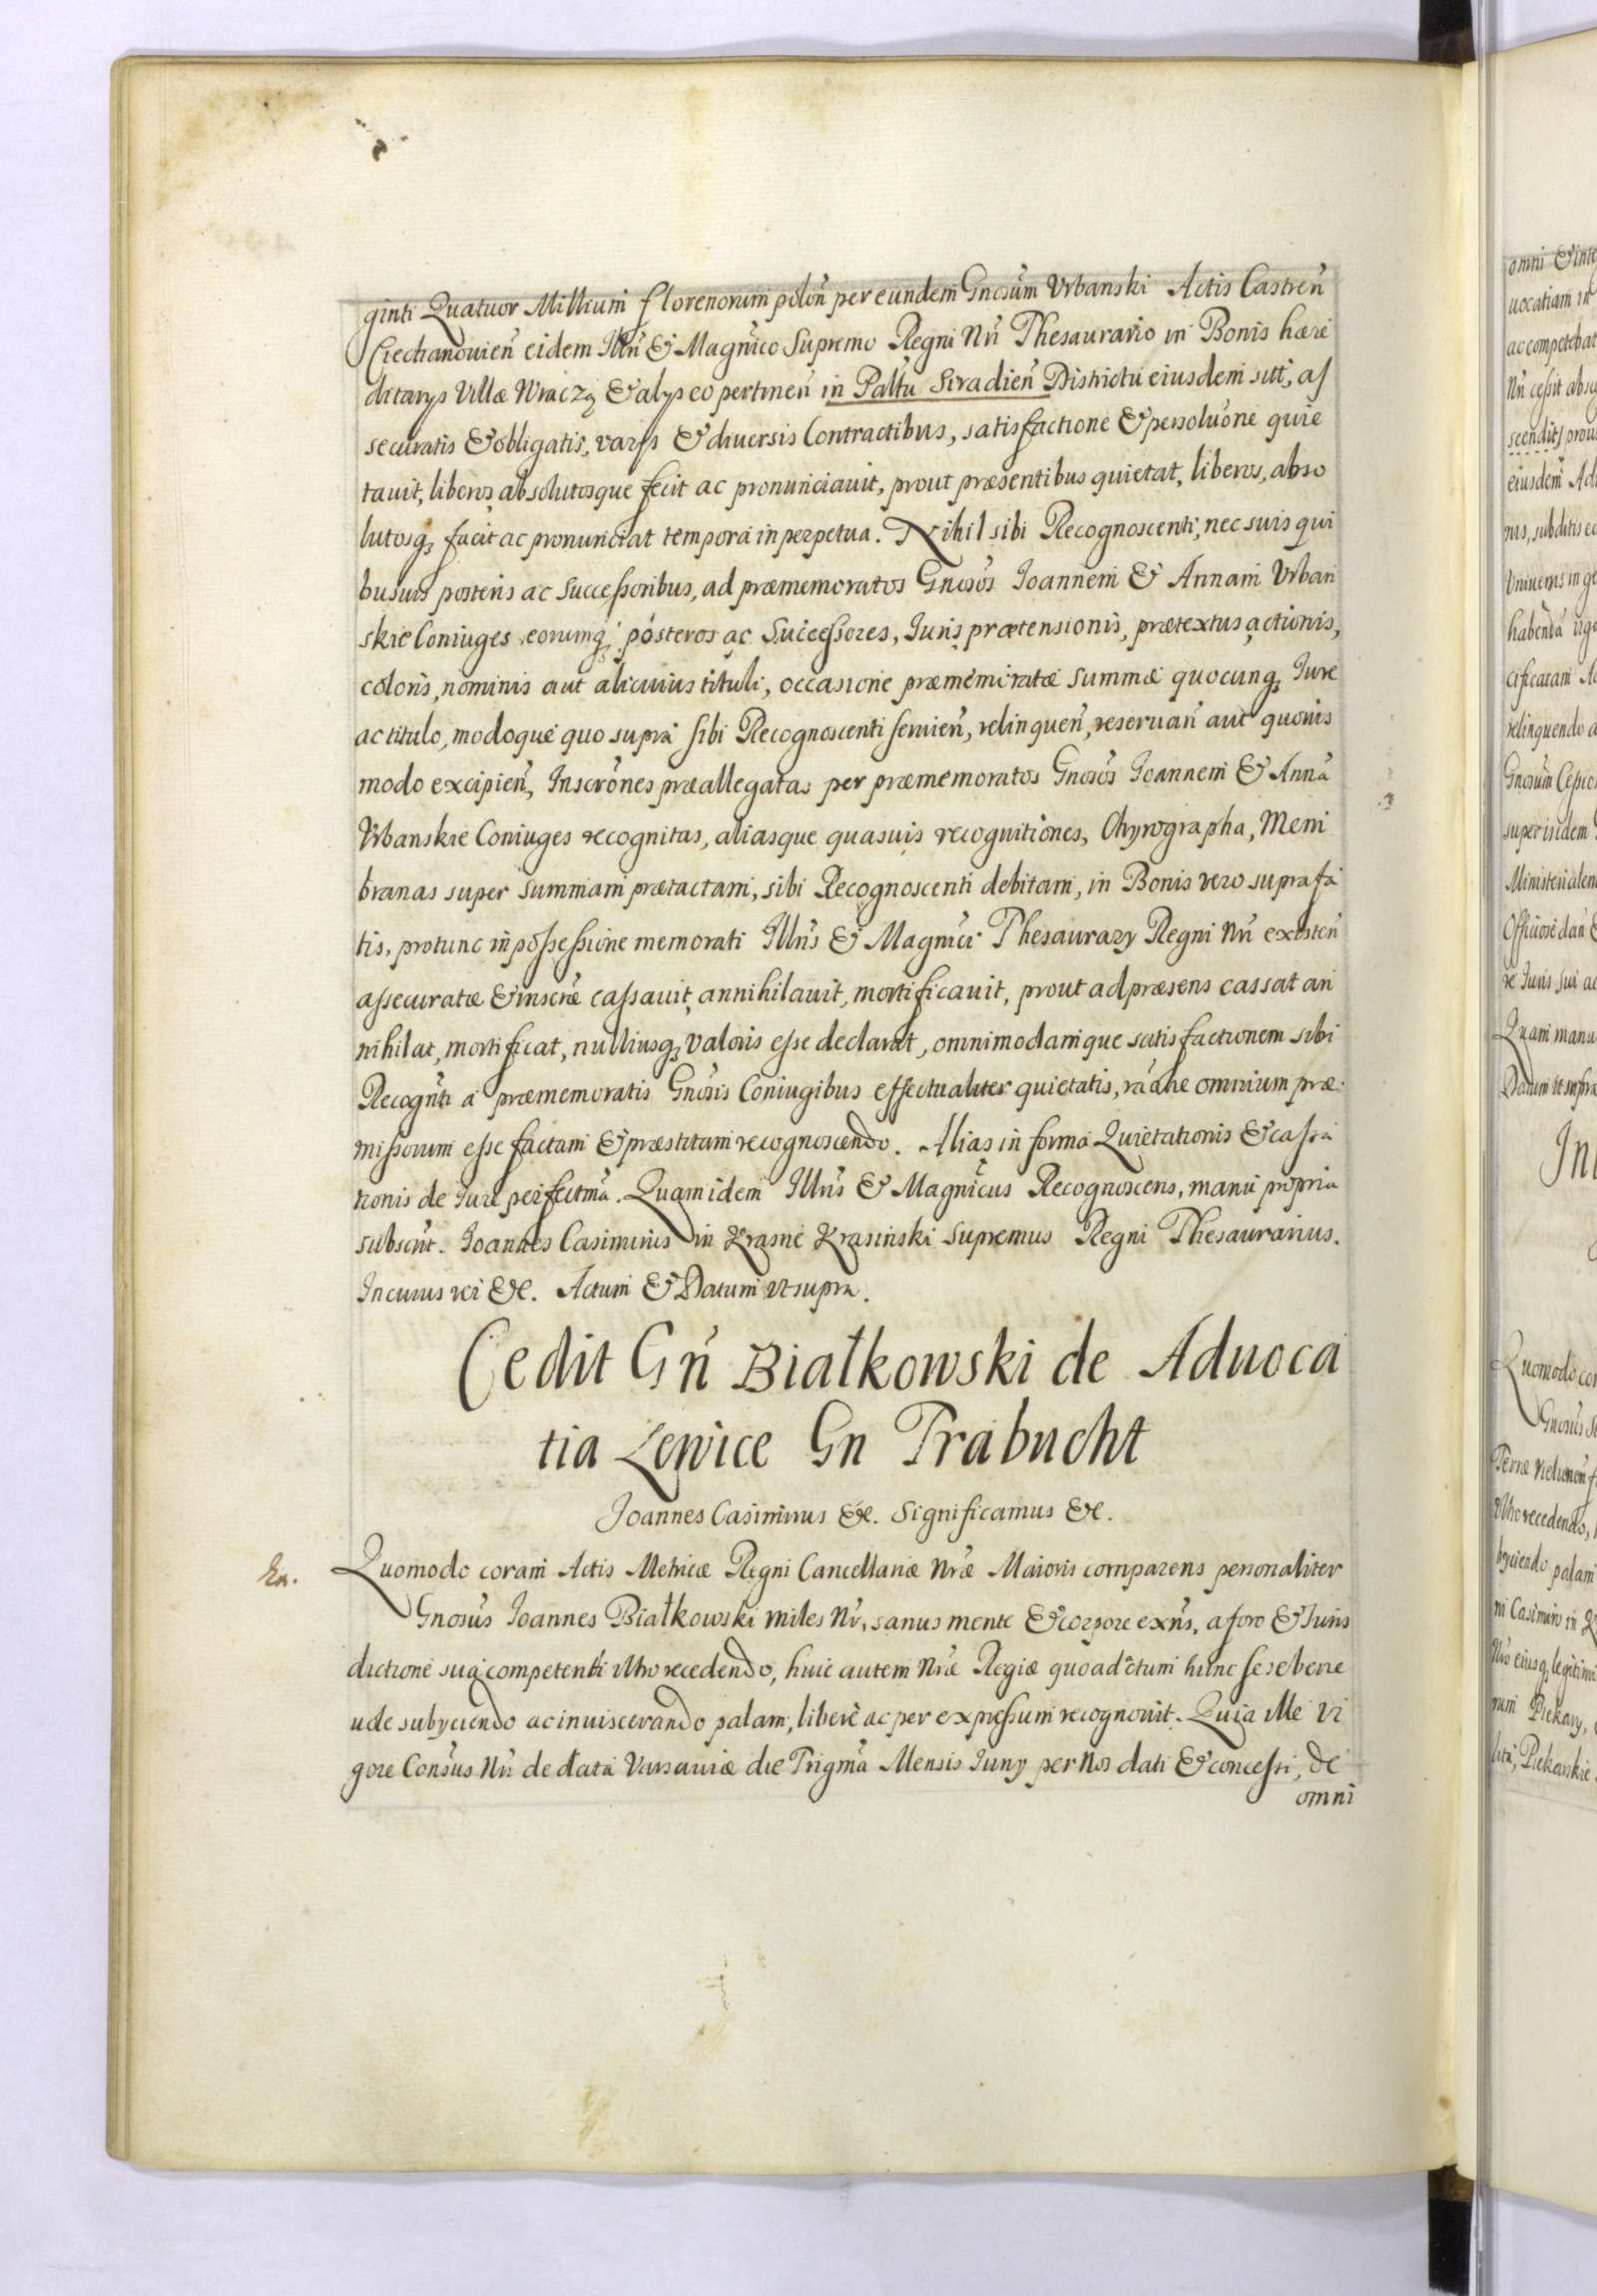 ginti Quatuor Millium florenorum polon̄ per eundem Gnosum Vrbanski Actis Castren̄
Ciechanouien̄ eidem Illri & Magnico Supremo Regni Nri Thesaurario in Bonis hære
ditarijs Villæ Wracza & alijs eo pertinen̄ in Paltu Siradien̄ Districtu eiusdem sitt, as
securatis & obligatis, varijs & diuersis Contractibus, satisfactione & persolu̅one quie
tauit, liberos absolutosque fecit ac pronunciauit, prout præsentibus quietat, liberos, abso
lutosq; facit ac pronunciat tempora in perpetua. Nihil sibi Recognoscenti, nec suis qui
busuis posteris ac Successoribus, ad præmemoratos Gnosos Joannem & Annam Vrban
skie Coniuges eorumq; posteros ac Successores, Juris prætensionis, prætextus actionis,
coloris, nominis aut alicuius tituli, occasione præmemoratæ summæ quocunq; Jure
ac titulo, modoque quo supra sibi Recognoscenti seruien̄, relinquen̄, reseruan̄ aut quouis
modo excipien̄, Inscrōnes præallegatas per præmemoratos Gnosos Joannem & Annā
Vrbanskie Coniuges recognitas, aliasque quasuis recognitiones, Chyrographa, Mem
branas super summam prætactam, sibi Recognoscenti debitam, in Bonis vero suprafa
tis, protunc in possessione memorati Illris & Magnici Thesaurarij Regni Nri existen̄
assecuratæ & inscræ cassauit, annihilauit, mortificauit, prout ad præsens cassat an
nihilat, mortificat, nulliusq; valoris esse declarat, omnimodamque satisfactionem sibi
Recognti a præmemoratis Gnosis Coniugibus effectualiter quietatis, raōne omnium præ
missorum esse factam & præstitam recognoscendo. Alias in forma Quietationis & cassa
tionis de Jure perfectma. Quam idem Illris & Magnicus Recognoscens, manu propria
subscrit. Joannes Casimirus in Krasne Krasinski Supremus Regni Thesaurarius.
In cuius rei &c. Actum & Datum vt supra.
Cedit Gn̄ Białkowski de Aduoca
tia Lewice Gn Trabucht
Joannes Casimirus &c. Significamus &c.
Quomodo coram Actis Metricæ Regni Cancellariæ Nræ Maioris comparens personaliter
Gnosus Joannes Białkowski miles Nr, sanus mente & corpore exn̄s, a foro & Juris
dictione sua competenti vltro recedendo, huic autem Nræ Regiæ quo ad actum hunc sese bene
uole subyciendo ac inuiscerando palam, libere ac per expressum recognouit. Quia ille vi
gore Consus Nri de data Varsauiæ die Trigma Mensis Juny per Nos dati & concessi, de
omni